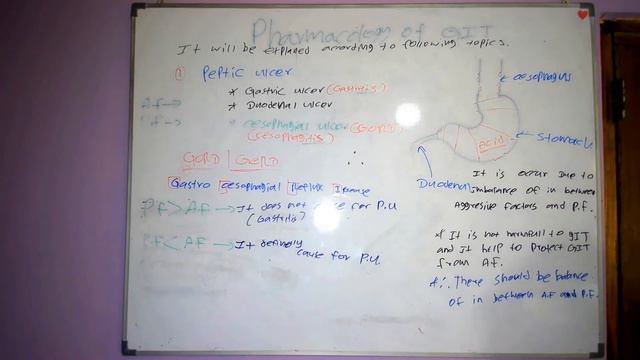 Pharmacology of GIT
It will be explaned according to following topics.
① Peptic ulcer
* Gastric ulcer (Gastitis)
A.F→
* Duodenal ulcer
P.F→
* oesophagial ulcer (GORD)
(oesophagitis)
GORD | GERD ∴
Gastro oesophagial Reflux
P.F > A.F → It does not cause for P.U
(Gastitis)
P.F < A.F → It definely
cause for P.U.
oesophagus
Stomach
acid
Duodenal
It is occur due to
imbalance of in between
Aggresive factors and P.F.
* It is not harmfull to GIT
and it help to protect GIT
from A.F.
* ∴ There should be balance
of in between A.F and P.F.